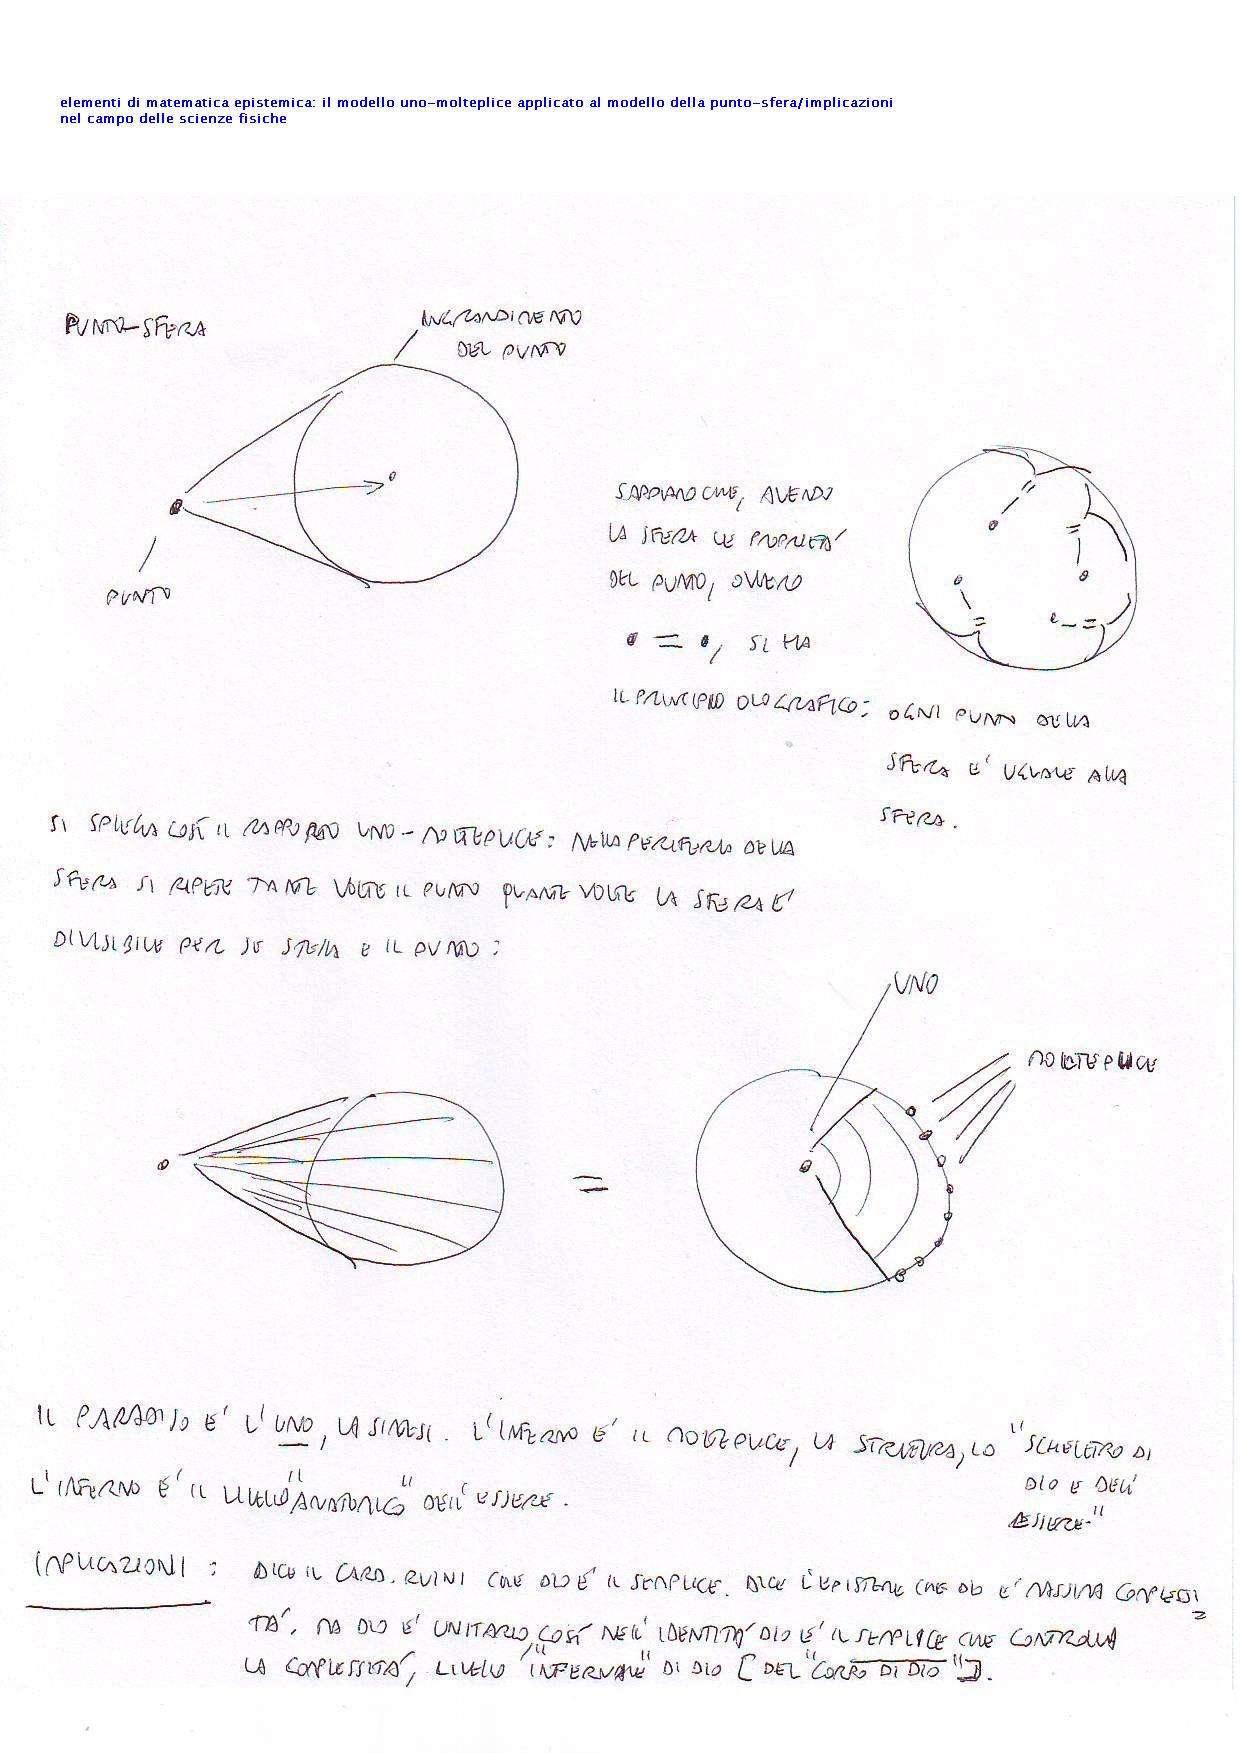 elementi di matematica epistemica: il modello uno-molteplice applicato al modello della punto-sfera/implicazioni
nel campo delle scienze fisiche
PUNTO-SFERA
INGRANDIMENTO
DEL PUNTO
PUNTO
SAPPIAMO CHE, AVENDO
LA SFERA LE PROPRIETA'
DEL PUNTO, OVVERO
= , SI HA
IL PRINCIPIO OLOGRAFICO: OGNI PUNTO DELLA
SFERA E' UGUALE ALLA
SFERA.
SI SPIEGA COSÌ IL RAPPORTO UNO-MOLTEPLICE: NELLA PERIFERIA DELLA
SFERA SI RIPETE TANTE VOLTE IL PUNTO QUANTE VOLTE LA SFERA E'
DIVISIBILE PER SE STESSA E IL PUNTO:
UNO
MOLTEPLICE
=
IL PARADISO E' L'UNO, LA SINTESI. L'INFERNO E' IL MOLTEPLICE, LA STRUTTURA, LO "SCHELETRO DI
DIO E DELL'
ESSERE."
L'INFERNO E' IL LIVELLO "ANATOMICO" DELL'ESSERE.
IMPLICAZIONI: DICE IL CARD. RUINI CHE DIO E' IL SEMPLICE. DICE L'EPISTEME CHE DIO E' MASSIMA COMPLESSI
TA', MA DIO E' UNITARIO, COSÌ NELL'IDENTITA' DIO E' IL SEMPLICE CHE CONTROLLA
LA COMPLESSITA', LIVELLO "INFERNALE" DI DIO [DEL "CORPO DI DIO"].